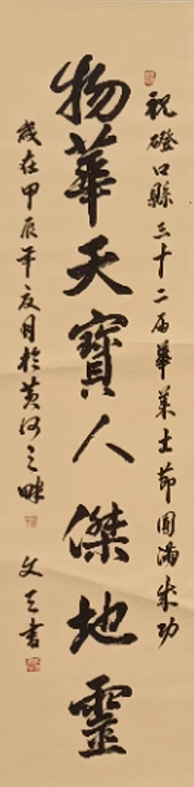 祝磴口縣三十二届華萊士節圓滿成功
物華天寶人傑地靈
歲在甲辰年夏月於黄河之畔
文天書